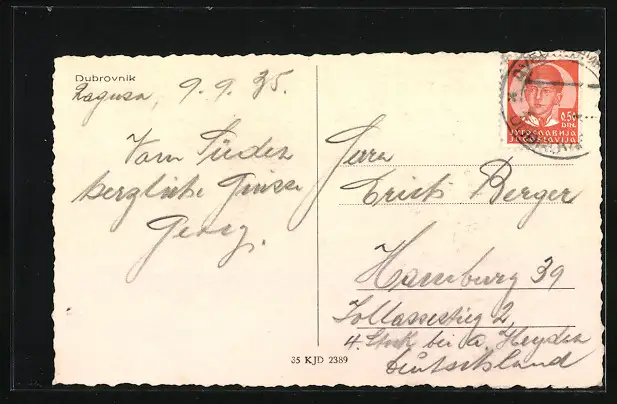 Dubrovnik
Ragusa, 9.9.35.
Vom Süden
herzliche Grüsse
Georg.
Herrn
Erich Berger
Hamburg 39
2
4. Stock bei A. Heyden
Deutschland
0.50
DIN.
ЈУГОСЛАВИЈА
JUGOSLAVIJA
35 KJD 2389